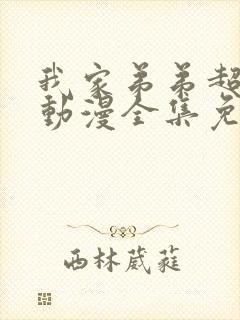 我家弟弟超
動漫全集免
西林葳蕤